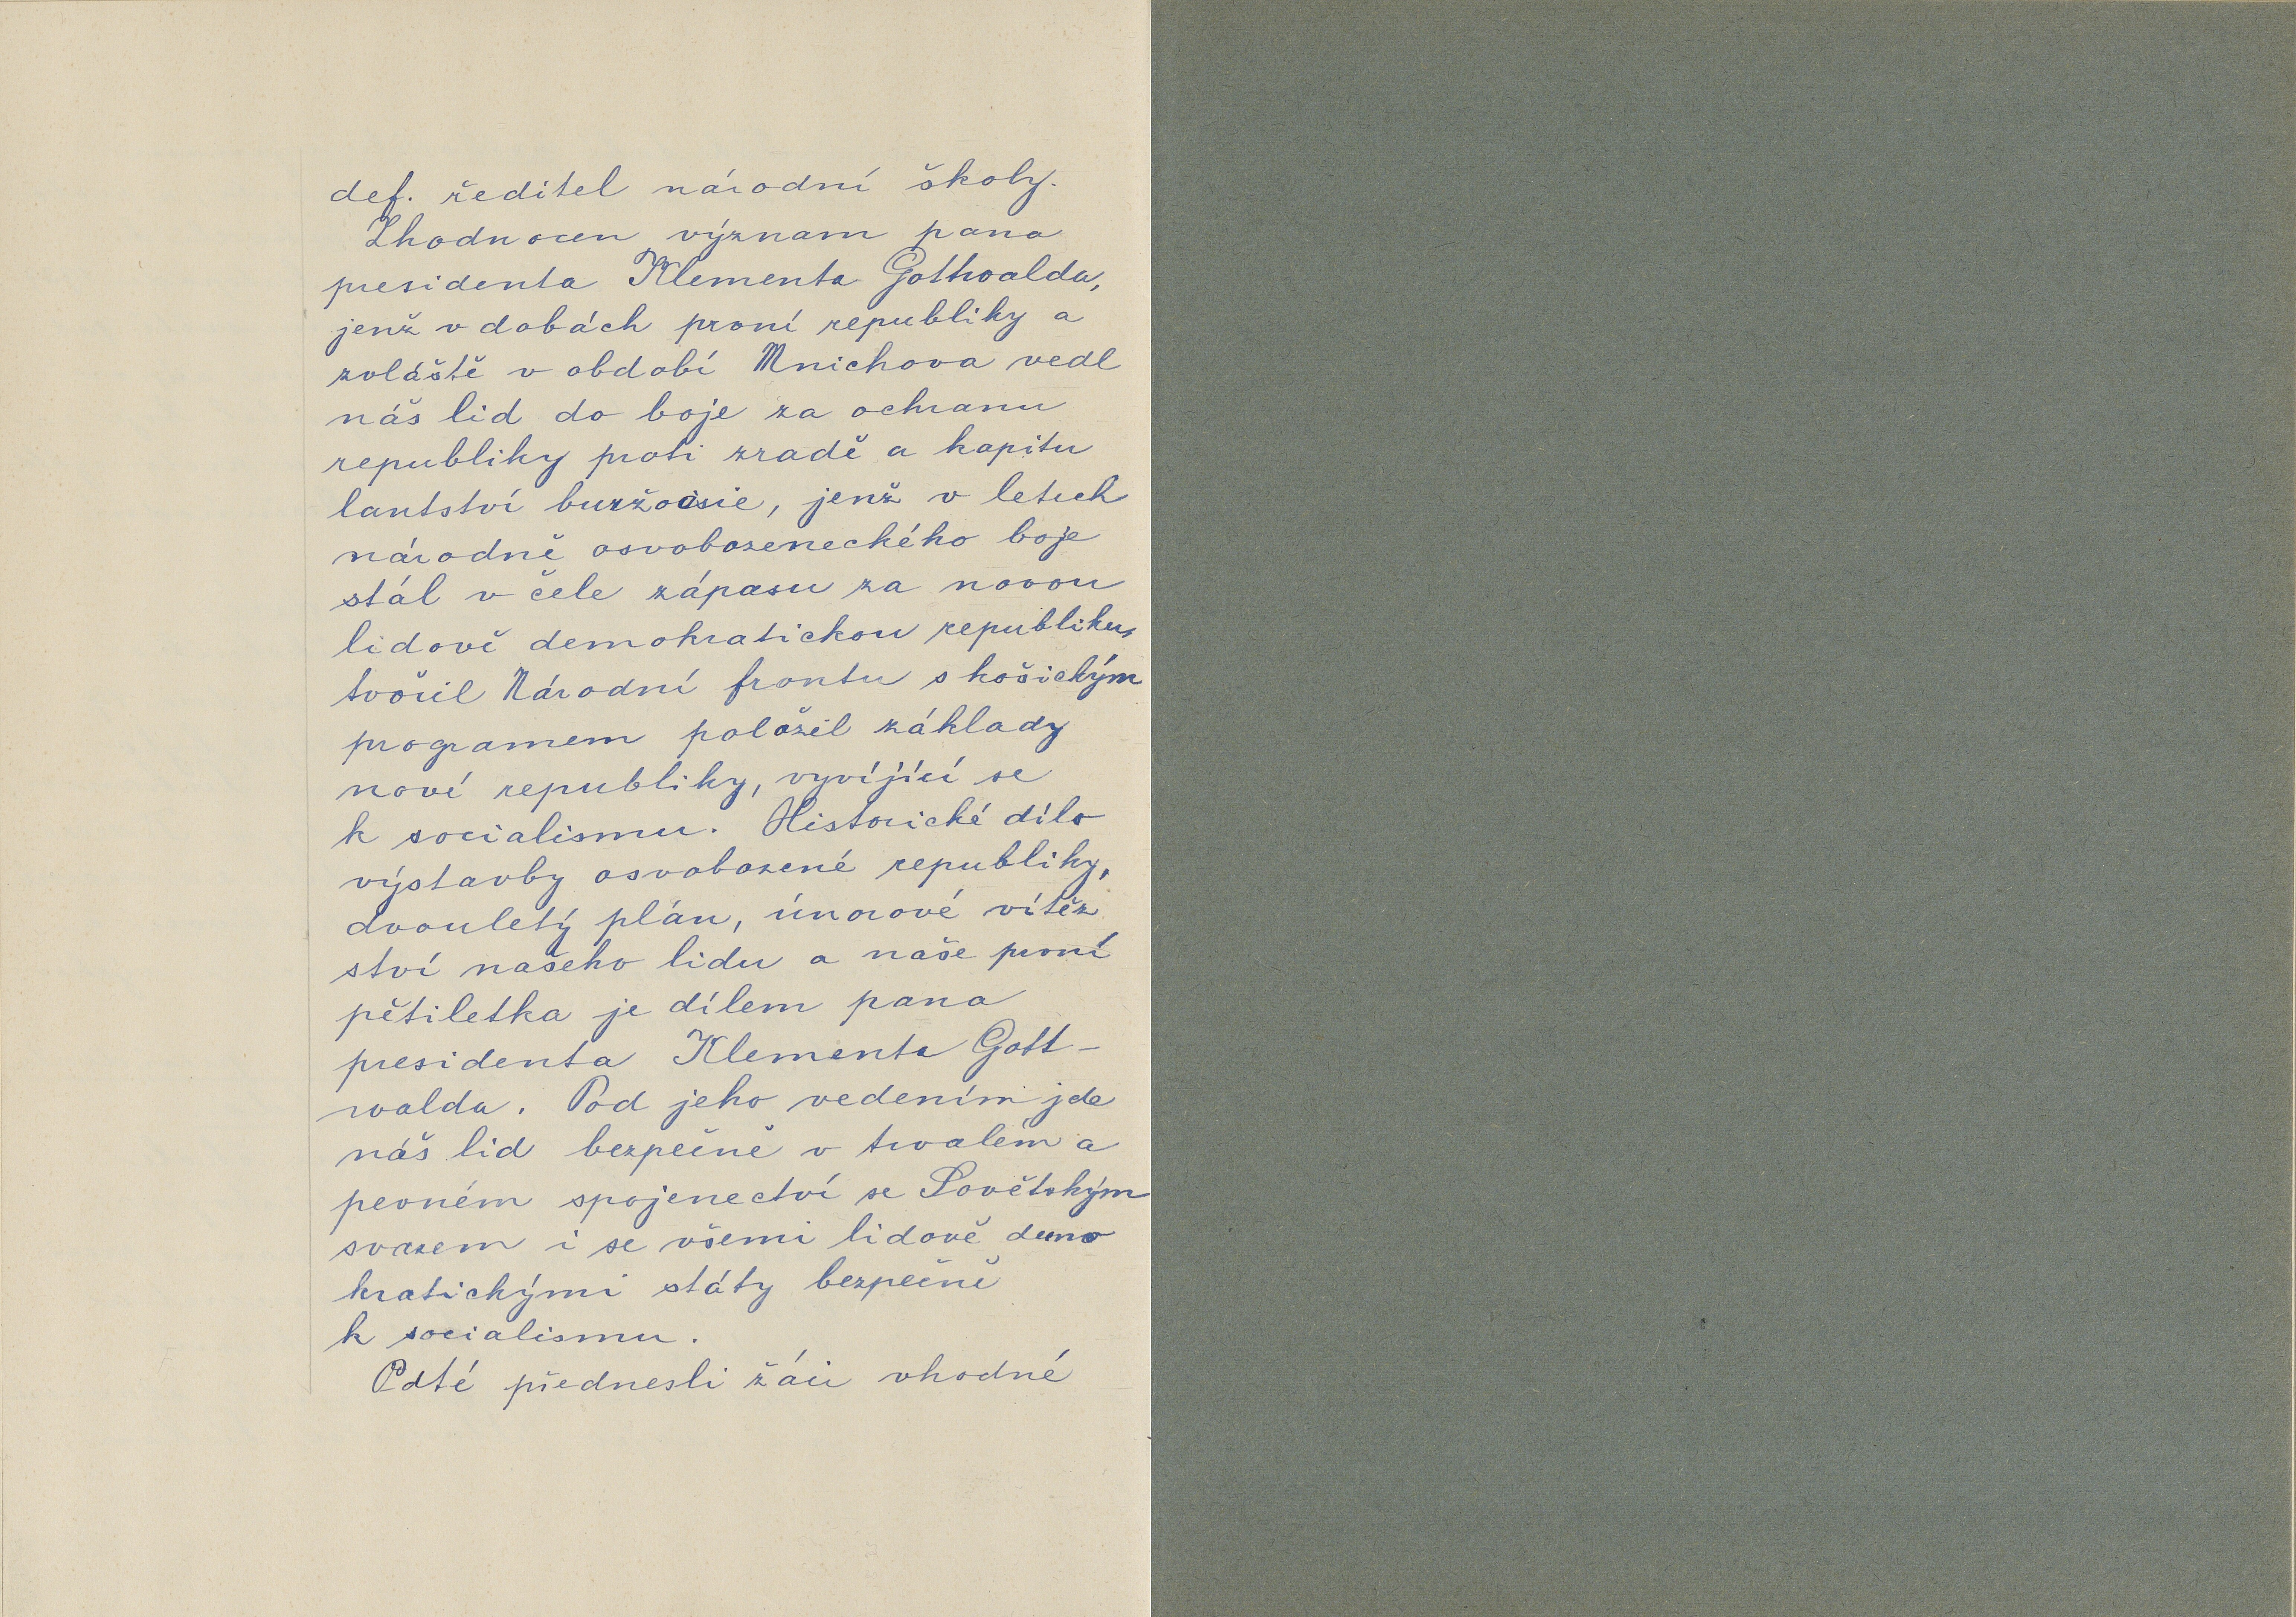 def. ředitel národní školy.
Zhodnocen význam pana
presidenta Klementa Gottwalda,
jenž v dobách první republiky a
zvláště v období Mnichova vedl
náš lid do boje za ochranu
republiky proti zradě a kapitu
lantství buržoisie, jenž v letech
národně osvobozeneckého boje
stál v čele zápasu za novou
lidově demokratickou republiku,
tvořil Národní frontu s košickým
programem položil základy
nové republiky, vyvíjící se
k socialismu. Historické dílo
výstavby osvobozené republiky,
dvouletý plán, únorové vítěz
ství našeho lidu a naše první
pětiletka je dílem pana
presidenta Klementa Gott-
walda. Pod jeho vedením jde
náš lid bezpečně v trvalém a
pevném spojenectví se Sovětským
svazem i se všemi lidově demo
kratickými státy bezpečně
k socialismu.
Poté přednesli žáci vhodné